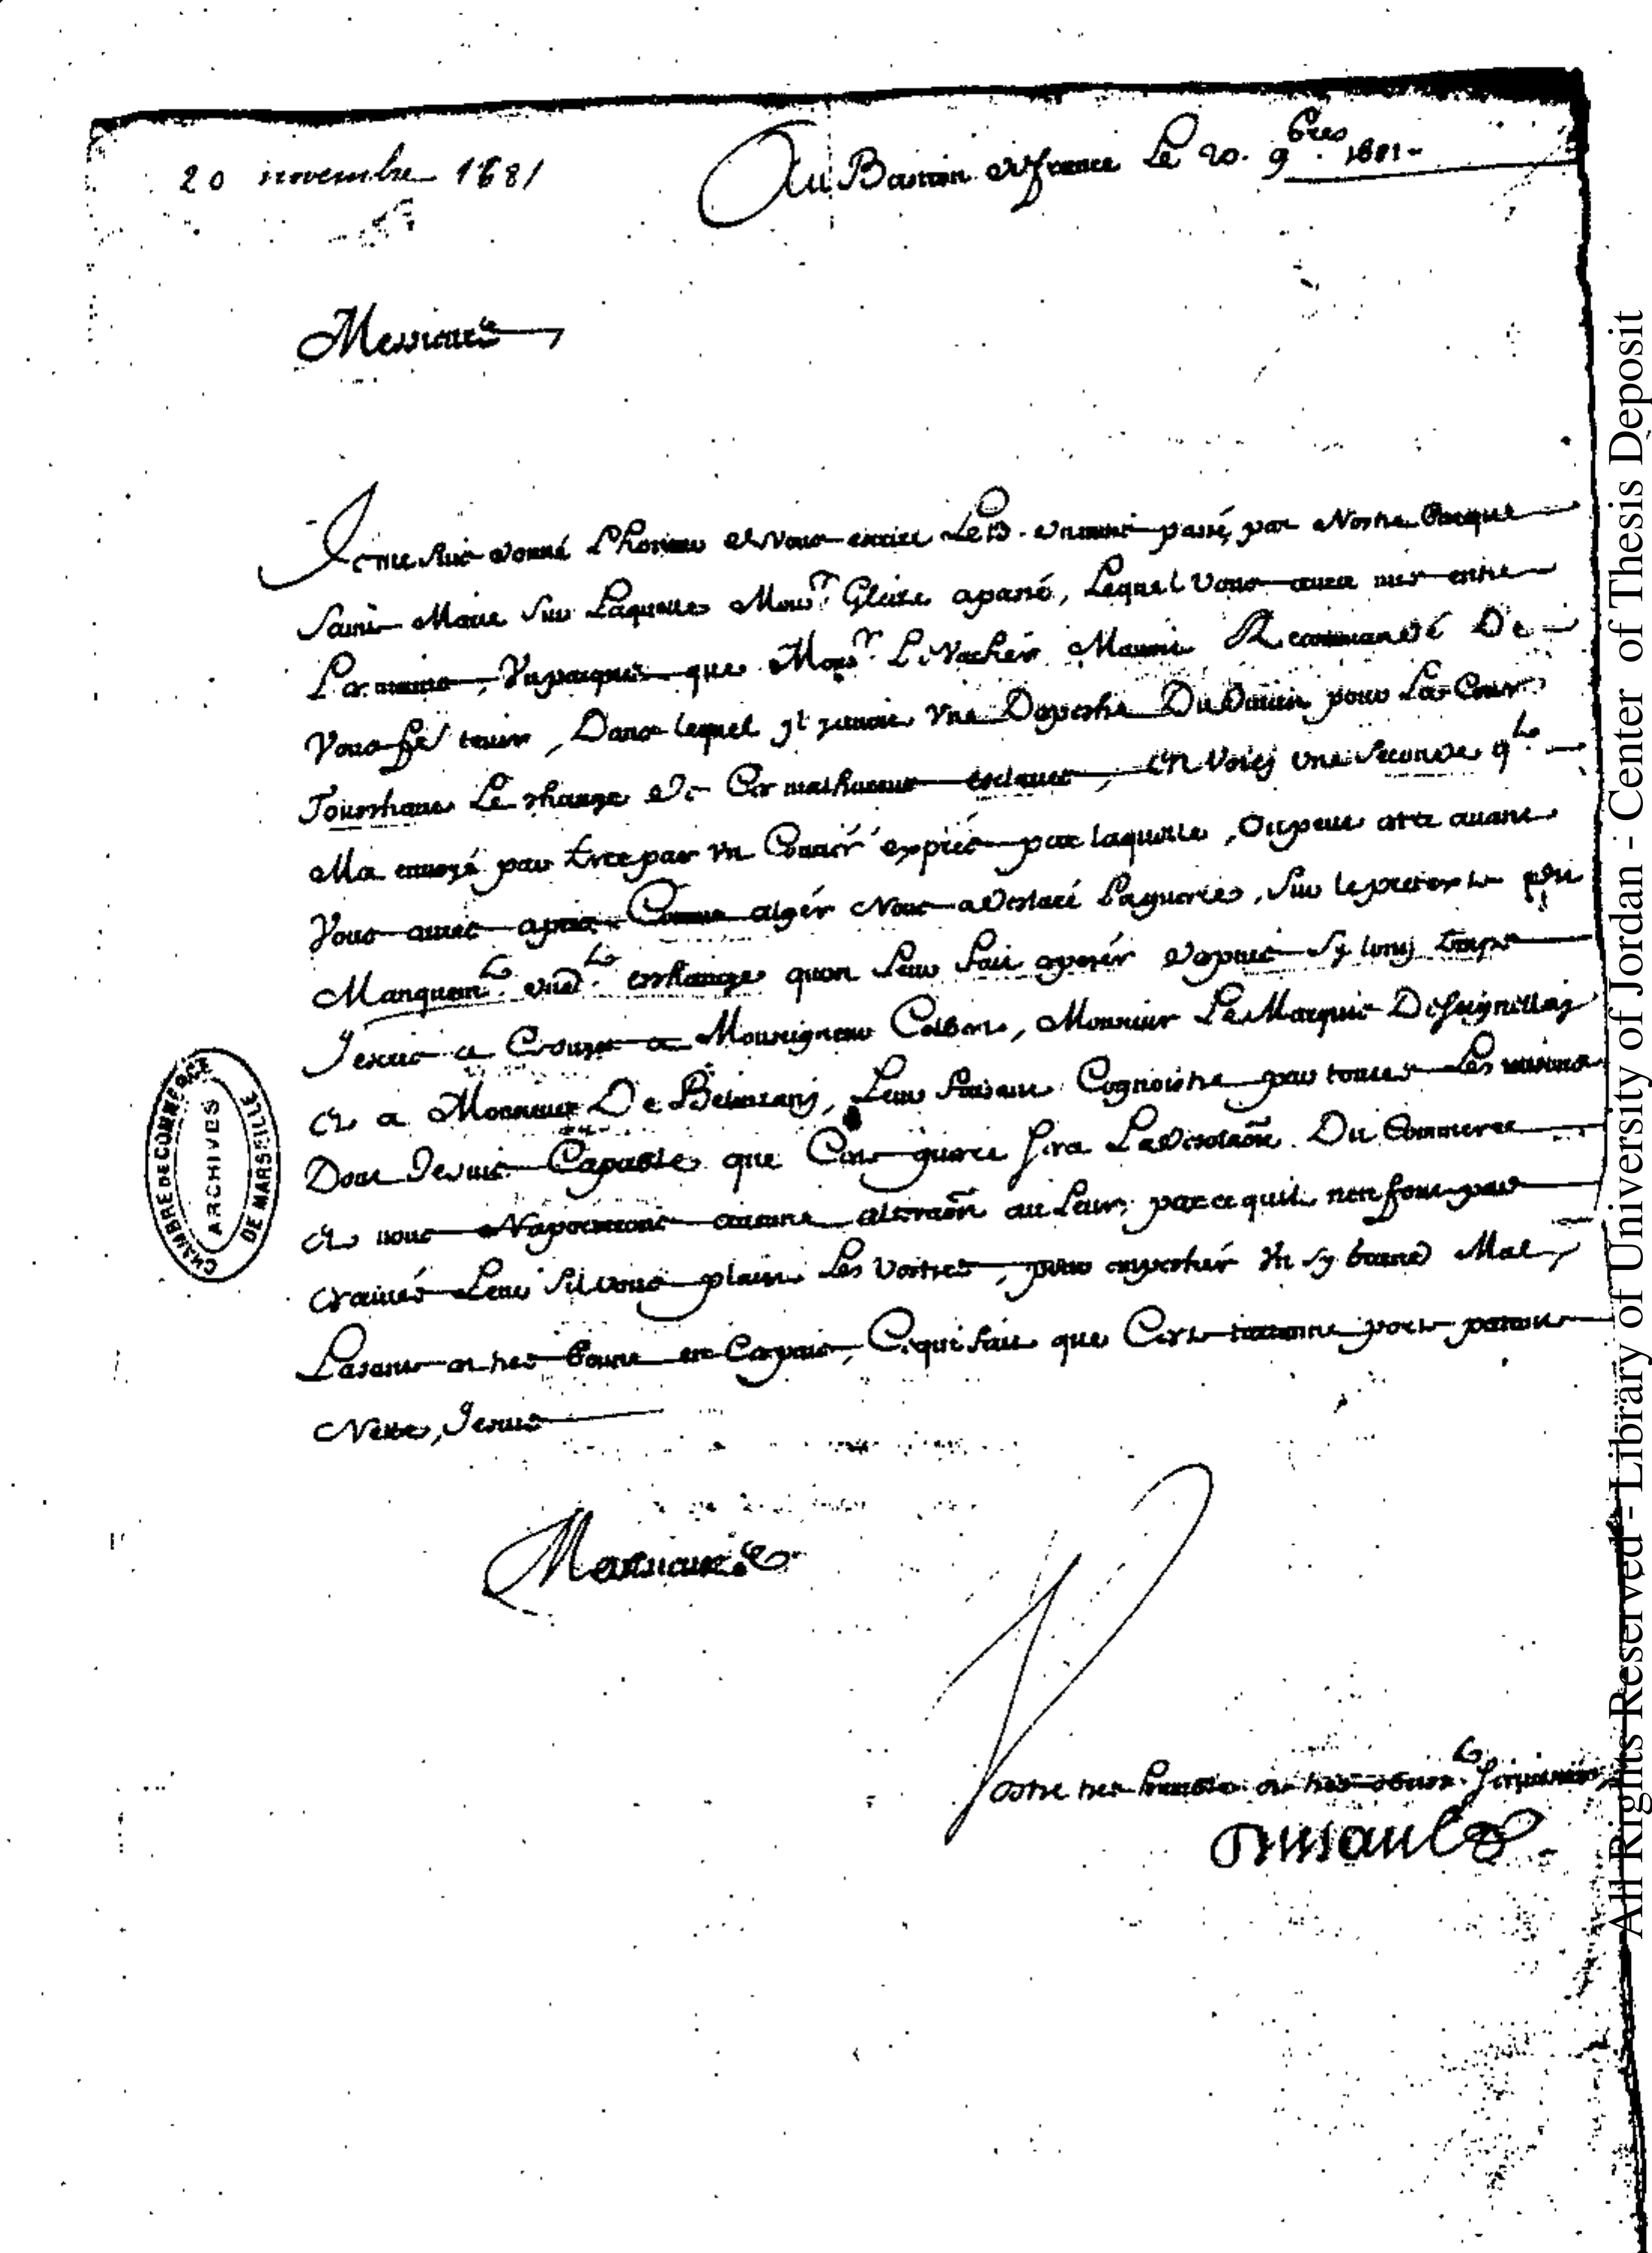 20 novembre 1681
Au Bastion de france Le 20. 9bres. 1681.
Messieurs
Je me suis donné L'honneur de vous escrire Le 13. du passé, par Nostre Barque
Saint Marie sur Laquelle Monsr. Gleize a passé, Lequel vous aura mis entre
Les mains, Un pacquet que Monsr. Le Vacher M'a Recommandé De
Vous fe tenir, Dans lequel il y avoit Une Depesche Du Divan pour La Cour
Touschant Le change de Ces malhureux esclaves, En voicy une seconde qle.
M'a envoyé par terre par un Courié exprés par laquelle, Ou peut estre avant
Vous aurez apris Comme algér Nous a desclaré La guerre, sur le pretexte
Manquemt. eschange quon Leur fait esperér depuis sy long temps
J'escris a Monseigneur Colbert, Monsieur Le Marquis De Seignellay
Et a Monsieur De Belinzany, Leur faisant Cognoistre par toutes Les raisons
Dont Je suis Capable que Cette guerre sera La desolaõn Du Commerce
Et nous N'aporterons aucune alteraõn au Leur, parce quils n'en font pas
Escrivés Leur sil vous plaist Les vostres, pour empeschér un sy grand Mal,
La sante est tres bonne en Ce pais, Ce qui fait que Cette tartanne porte patante
Nette, Je suis
Messieurs
Vostre tres humble et tres obeisst. serviteur
Dusault
CHAMBRE DE COMMERCE DE MARSEILLE
ARCHIVES
All Rights Reserved - Library of University of Jordan - Center of Thesis Deposit